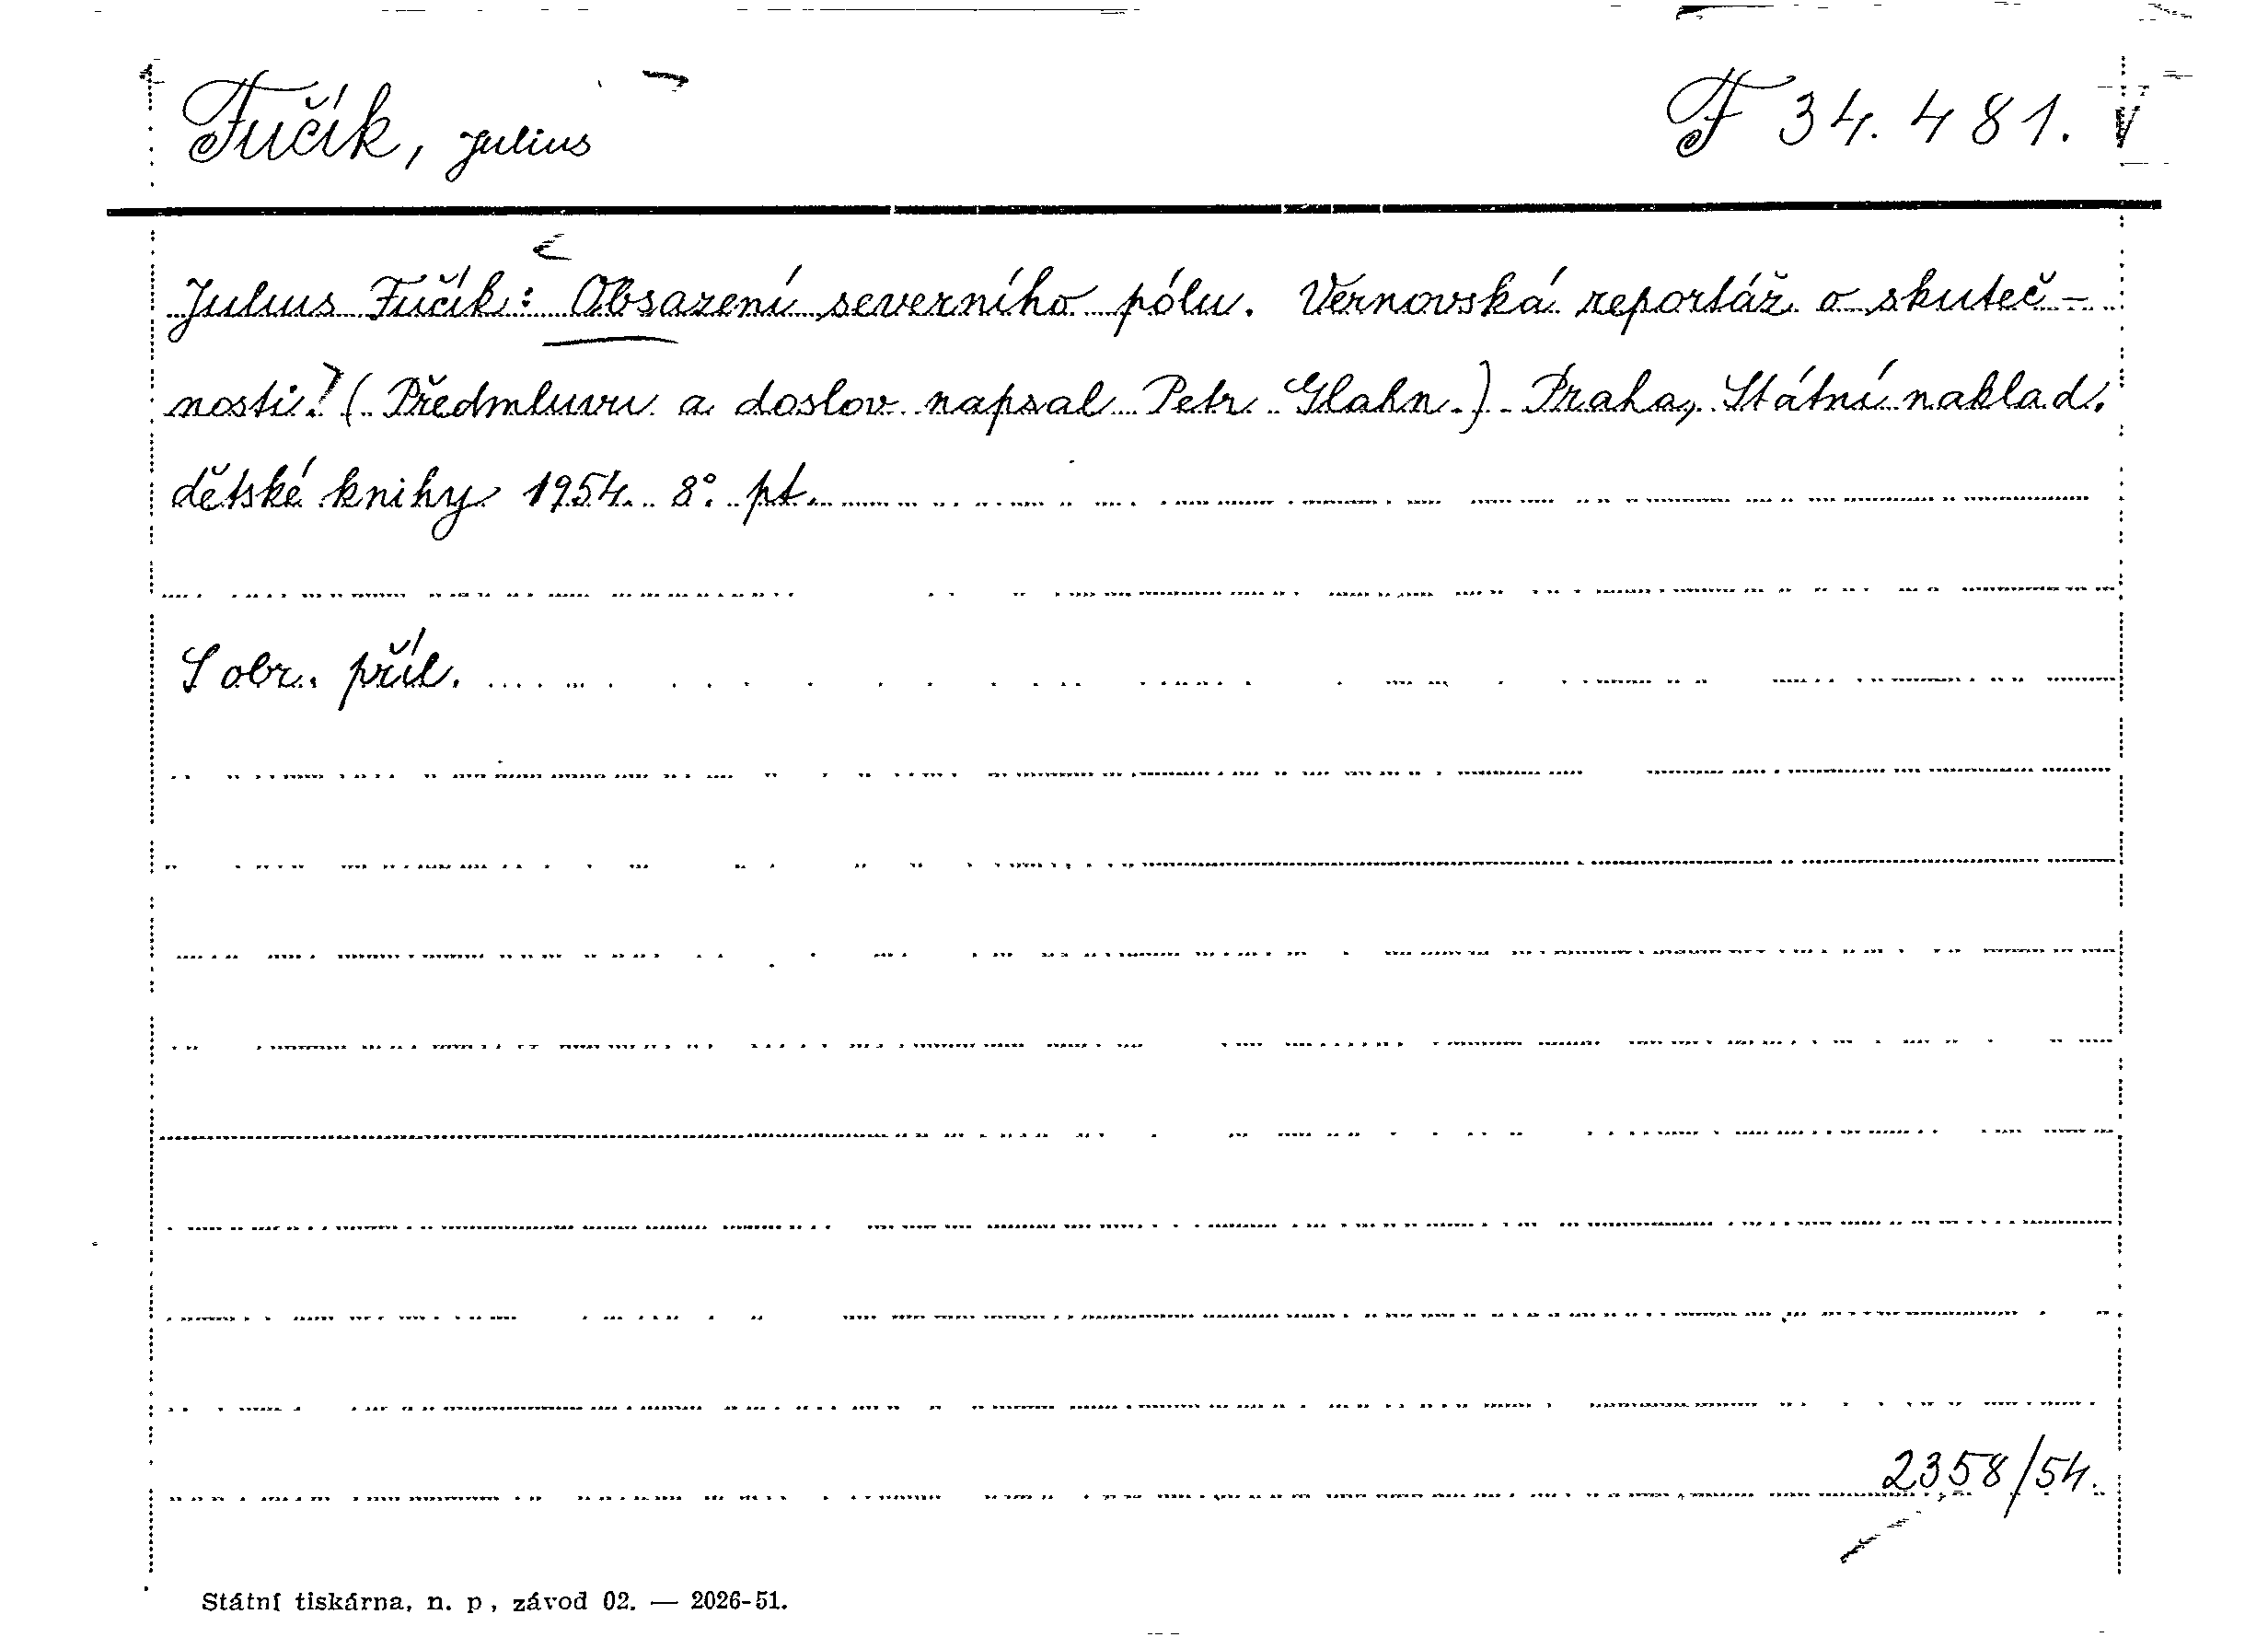 Fučík, Julius F 34.481.
Julius Fučík: Obsazení severního pólu. Vernovská reportáž o skuteč-
nosti. (Předmluvu a doslov napsal Petr Glahn.) Praha, Státní naklad.
dětské knihy 1954. 8°. pt.
S obr. příl.
2358/54.
Státní tiskárna, n. p., závod 02. — 2026-51.